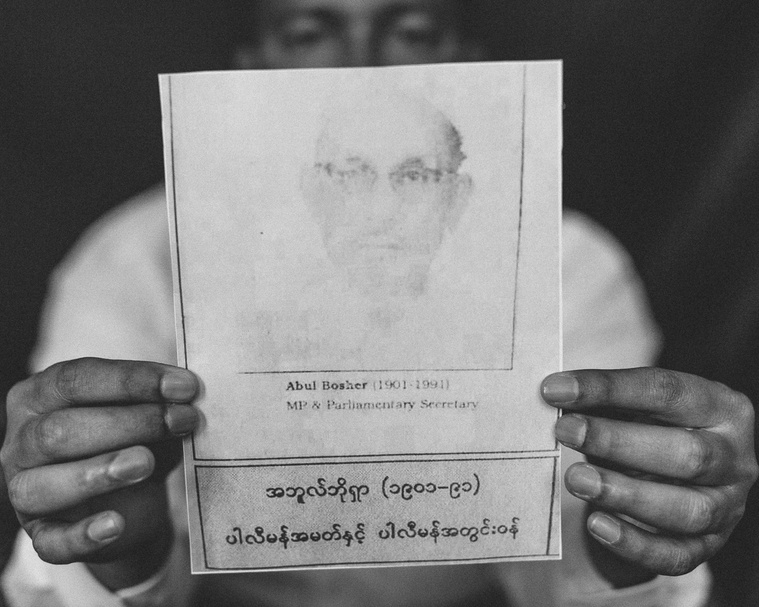 Abul Bosher (1901-1991)
MP & Parliamentary Secretary
အဘူလ်ဘိုရှာ (၁၉၀၁–၉၁)
ပါလီမန်အမတ်နှင့် ပါလီမန်အတွင်းဝန်